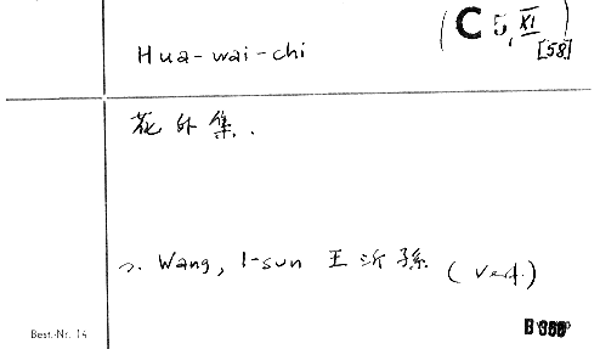 (C 5, XI [58])
Hua-wai-chi
花外集.
Wang, I-sun 王沂孫 (Verf.)
Best.-Nr. 14